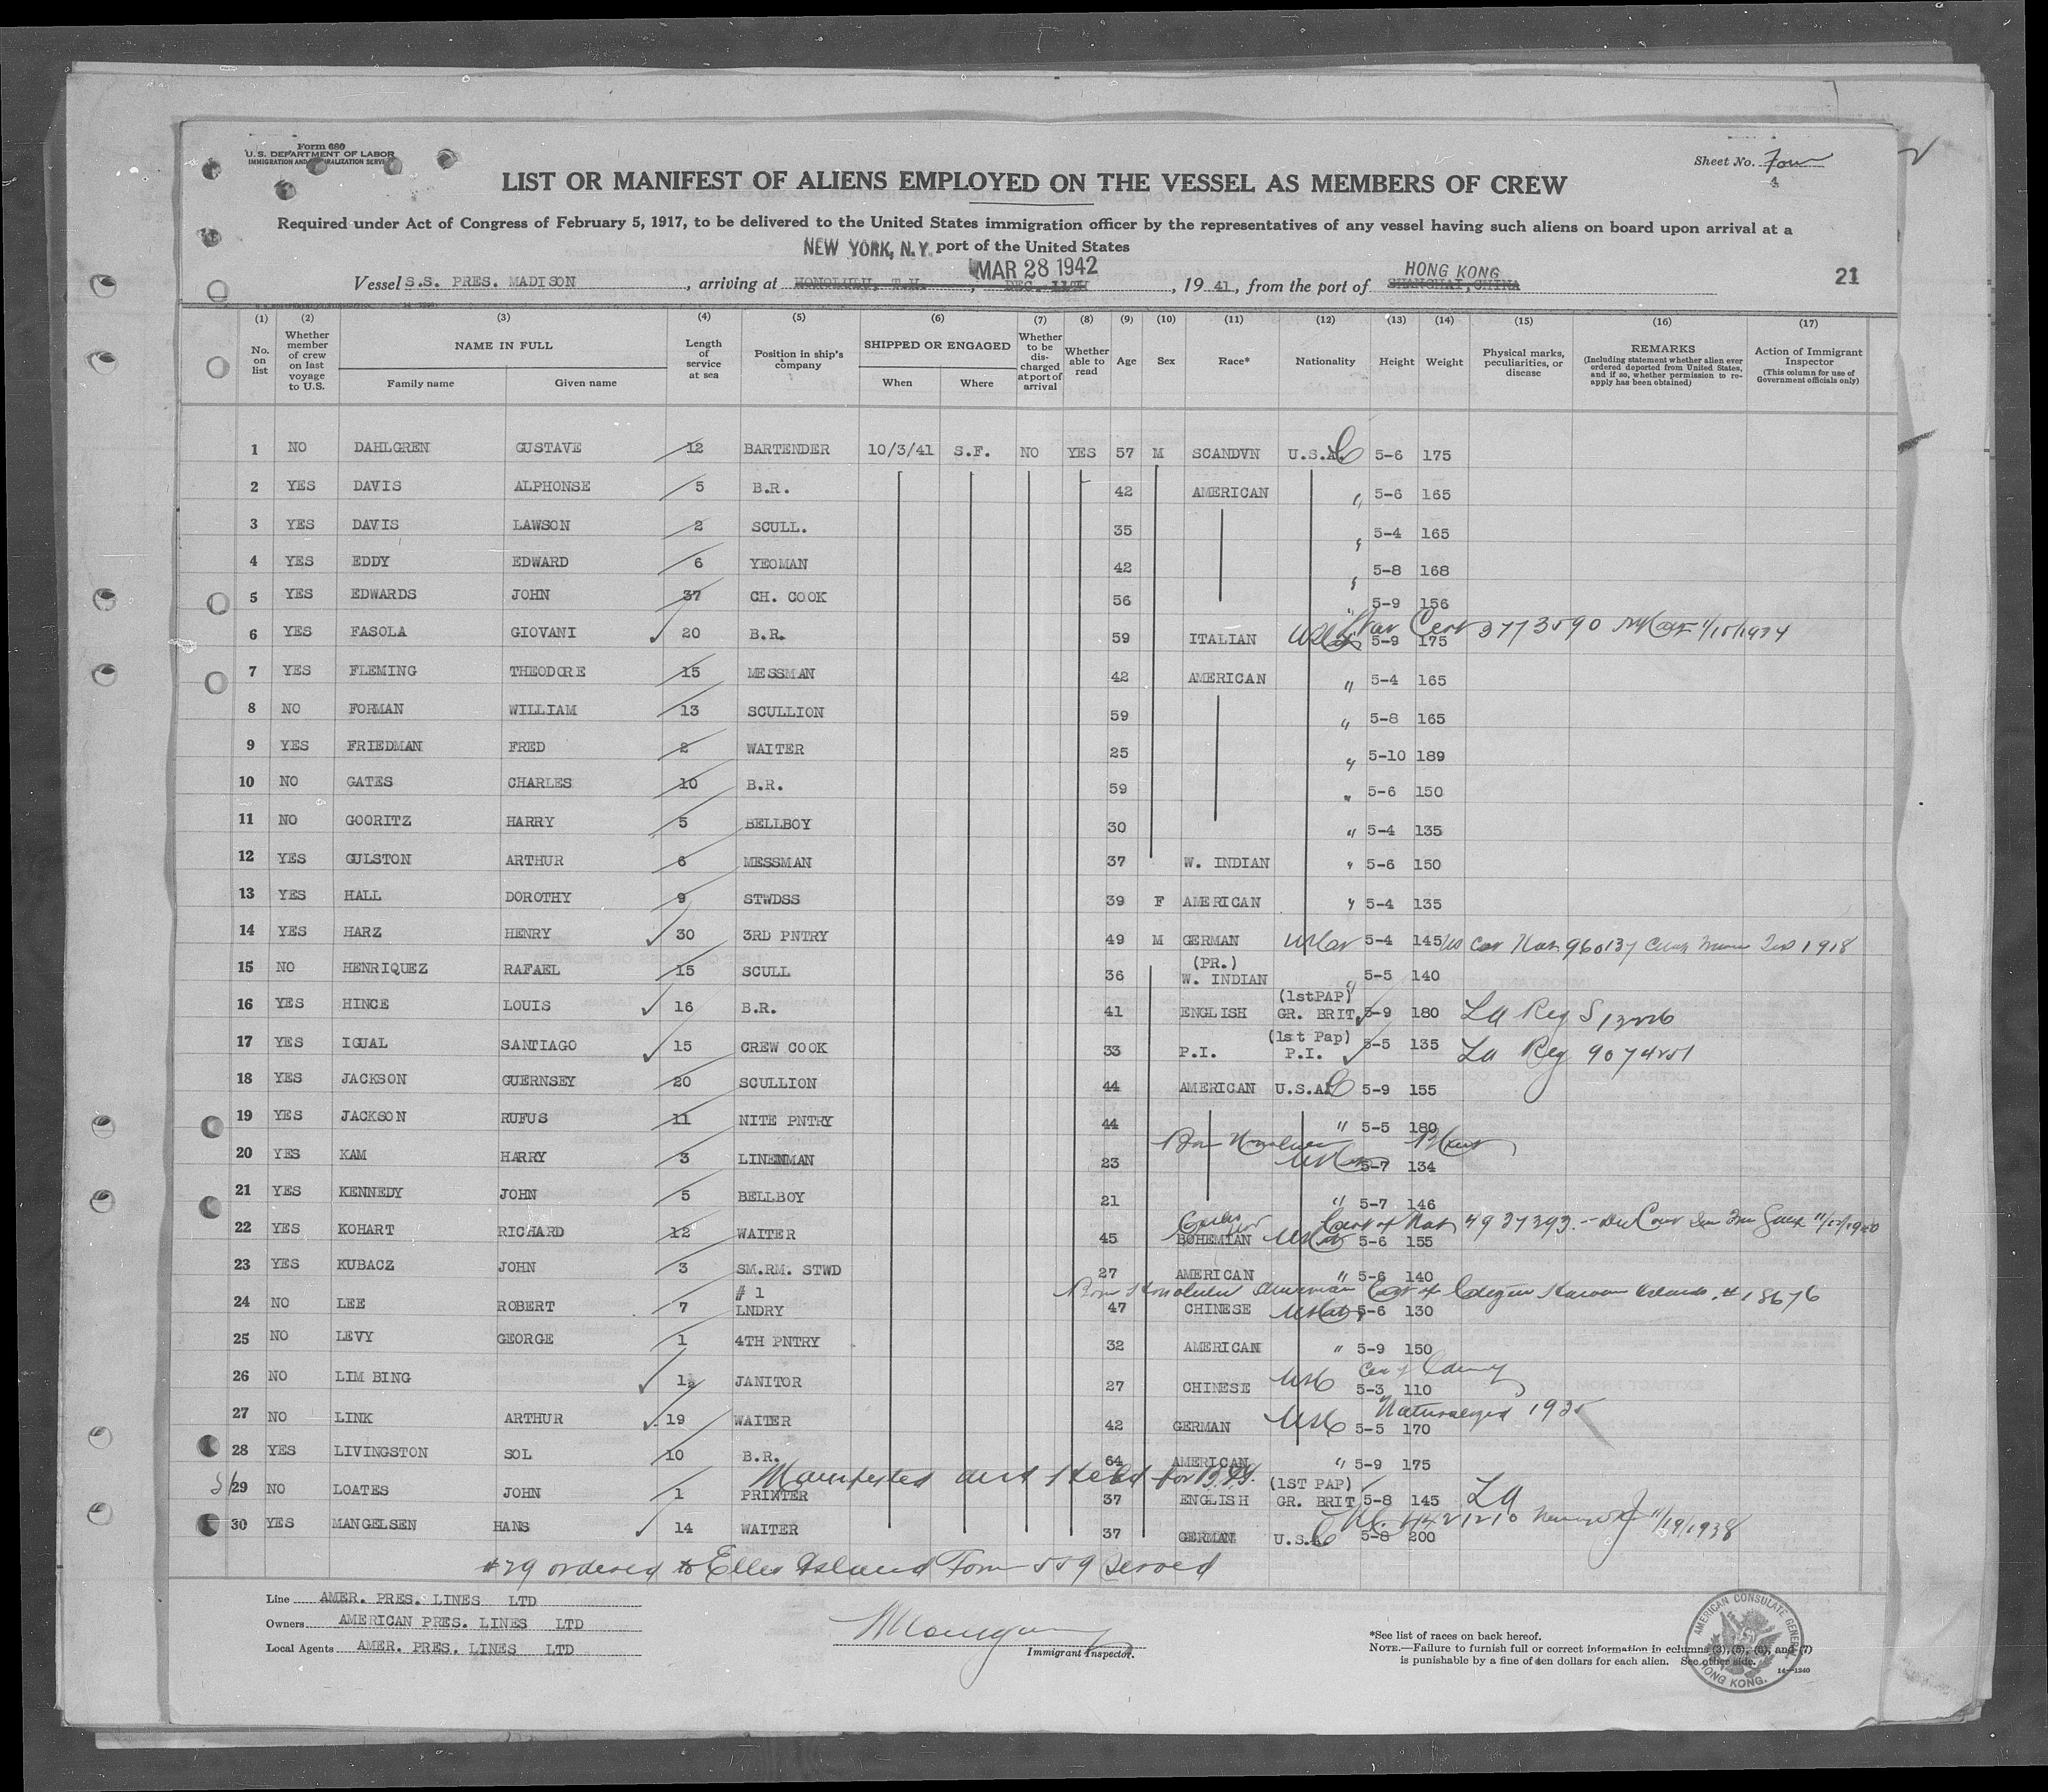 Form 680
U.S. DEPARTMENT OF LABOR
IMMIGRATION AND NATURALIZATION SERVICE
Sheet No. Four
4
LIST OR MANIFEST OF ALIENS EMPLOYED ON THE VESSEL AS MEMBERS OF CREW
Required under Act of Congress of February 5, 1917, to be delivered to the United States immigration officer by the representatives of any vessel having such aliens on board upon arrival at a
NEW YORK, N.Y. port of the United States
MAR 28 1942
HONG KONG
Vessel S.S. PRES. MADISON, arriving at HONOLULU, T.H., DEC. 11TH, 19 41, from the port of SHANGHAI, CHINA
21
(1) (2) (3) (4) (5) (6) (7) (8) (9) (10) (11) (12) (13) (14) (15) (16) (17)
No. on list
Whether member of crew on last voyage to U.S.
NAME IN FULL
Family name Given name
Length of service at sea
Position in ship's company
SHIPPED OR ENGAGED
When Where
Whether to be discharged at port of arrival
Whether able to read
Age
Sex
Race*
Nationality
Height
Weight
Physical marks, peculiarities, or disease
REMARKS
(Including statement whether alien ever ordered deported from United States, and if so, whether permission to reapply has been obtained)
Action of Immigrant Inspector
(This column for use of Government officials only)
1 NO DAHLGREN GUSTAVE 12 BARTENDER 10/3/41 S.F. NO YES 57 M SCANDVN U.S.A. 5-6 175
2 YES DAVIS ALPHONSE 5 B.R. 42 AMERICAN " 5-6 165
3 YES DAVIS LAWSON 2 SCULL. 35 " 5-4 165
4 YES EDDY EDWARD 6 YEOMAN 42 " 5-8 168
5 YES EDWARDS JOHN 37 CH. COOK 56 " 5-9 156
6 YES FASOLA GIOVANI 20 B.R. 59 ITALIAN USC 5-9 175 Nat Cert 3773590
7 YES FLEMING THEODORE 15 MESSMAN 42 AMERICAN " 5-4 165
8 NO FORMAN WILLIAM 13 SCULLION 59 " 5-8 165
9 YES FRIEDMAN FRED 2 WAITER 25 " 5-10 189
10 NO GATES CHARLES 10 B.R. 59 " 5-6 150
11 NO GOORITZ HARRY 5 BELLBOY 30 " 5-4 135
12 YES GULSTON ARTHUR 6 MESSMAN 37 W. INDIAN " 5-6 150
13 YES HALL DOROTHY 9 STWDSS 39 F AMERICAN " 5-4 135
14 YES HARZ HENRY 30 3RD PNTRY 49 M GERMAN 5-4 145 960137 1918
15 NO HENRIQUEZ RAFAEL 15 SCULL 36 (PR.) W. INDIAN " 5-5 140
16 YES HINCE LOUIS 16 B.R. 41 ENGLISH (1stPAP) GR. BRIT 5-9 180 La Reg
17 YES IGUAL SANTIAGO 15 CREW COOK 33 P.I. (1st Pap) P.I. 5-5 135 La Reg
18 YES JACKSON GUERNSEY 20 SCULLION 44 AMERICAN U.S.A. 5-9 155
19 YES JACKSON RUFUS 11 NITE PNTRY 44 " 5-5 180
20 YES KAM HARRY 3 LINENMAN 23 Born Honolulu 5-7 134
21 YES KENNEDY JOHN 5 BELLBOY 21 " 5-7 146
22 YES KOHART RICHARD 12 WAITER 45 BOHEMIAN 5-6 155 Cert of Nat 4937393
23 YES KUBACZ JOHN 3 SM.RM. STWD 27 AMERICAN " 5-6 140
24 NO LEE ROBERT 7 # 1 LNDRY 47 CHINESE 5-6 130 Born Honolulu American #18676
25 NO LEVY GEORGE 1 4TH PNTRY 32 AMERICAN " 5-9 150
26 NO LIM BING 1½ JANITOR 27 CHINESE USC 5-3 110
27 NO LINK ARTHUR 19 WAITER 42 GERMAN USC 5-5 170 Naturalized 1935
28 YES LIVINGSTON SOL 10 B.R. 64 AMERICAN " 5-9 175
Manifested and Held for B.S.I.
29 NO LOATES JOHN 1 PRINTER 37 ENGLISH (1ST PAP) GR. BRIT 5-8 145 La
30 YES MANGELSEN HANS 14 WAITER 37 GERMAN U.S.A. 5-8 200 4421210 11/19/1938
#29 ordered to Ellis Island Form 559 Served
Line AMER. PRES. LINES LTD
Owners AMERICAN PRES. LINES LTD
Local Agents AMER. PRES. LINES LTD
Immigrant Inspector.
*See list of races on back hereof.
NOTE.—Failure to furnish full or correct information in columns (3), (5), (6), and (7)
is punishable by a fine of ten dollars for each alien. See other side.
14—1240
AMERICAN CONSULATE GENERAL
HONG KONG.